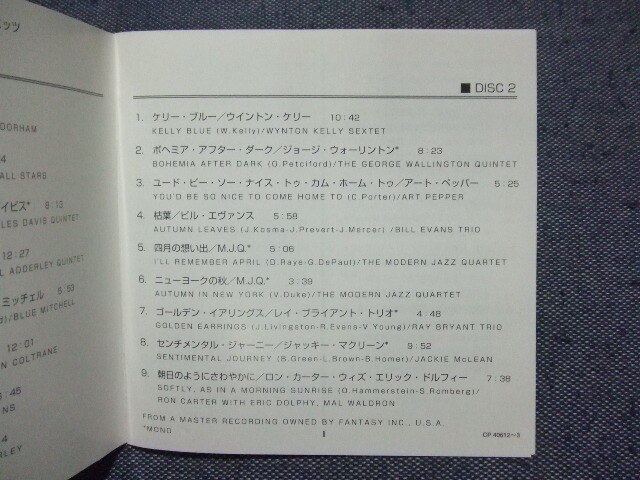 ッツ
DORHAM
4
ALL STARS
イビス* 8:13
LES DAVIS QUINTET
12:27
L ADDERLEY QUINTET
ミッチェル 5:53
d)/BLUE MITCHELL
12:01
N COLTRANE
:45
NS
4
RLEY
■ DISC 2
1. ケリー・ブルー/ウイントン・ケリー 10:42
KELLY BLUE (W.Kelly)/WYNTON KELLY SEXTET
2. ボヘミア・アフター・ダーク/ジョージ・ウォーリントン* 8:23
BOHEMIA AFTER DARK (O.Petciford)/THE GEORGE WALLINGTON QUINTET
3. ユード・ビー・ソー・ナイス・トゥ・カム・ホーム・トゥ/アート・ペッパー 5:25
YOU'D BE SO NICE TO COME HOME TO (C.Porter)/ART PEPPER
4. 枯葉/ビル・エヴァンス 5:58
AUTUMN LEAVES (J.Kosma-J.Prevert-J Mercer) /BILL EVANS TRIO
5. 四月の想い出/M.J.Q.* 5:06
I'LL REMEMBER APRIL (D.Raye-G.DePaul)/THE MODERN JAZZ QUARTET
6. ニューヨークの秋/M.J.Q.* 3:39
AUTUMN IN NEW YORK (V.Duke)/THE MODERN JAZZ QUARTET
7. ゴールデン・イアリングス/レイ・ブライアント・トリオ* 4:48
GOLDEN EARRINGS (J.Livingston-R.Evans-V Young)/RAY BRYANT TRIO
8. センチメンタル・ジャーニー/ジャッキー・マクリーン* 9:52
SENTIMENTAL JOURNEY (B.Green-L.Brown-B.Homer)/JACKIE McLEAN
9. 朝日のようにさわやかに/ロン・カーター・ウィズ・エリック・ドルフィー 7:38
SOFTLY, AS IN A MORNING SUNRISE (O.Hammerstein-S.Romberg)/
RON CARTER WITH ERIC DOLPHY, MAL WALDRON
FROM A MASTER RECORDING OWNED BY FANTASY INC., U.S.A.
*MONO
CP 40612〜3